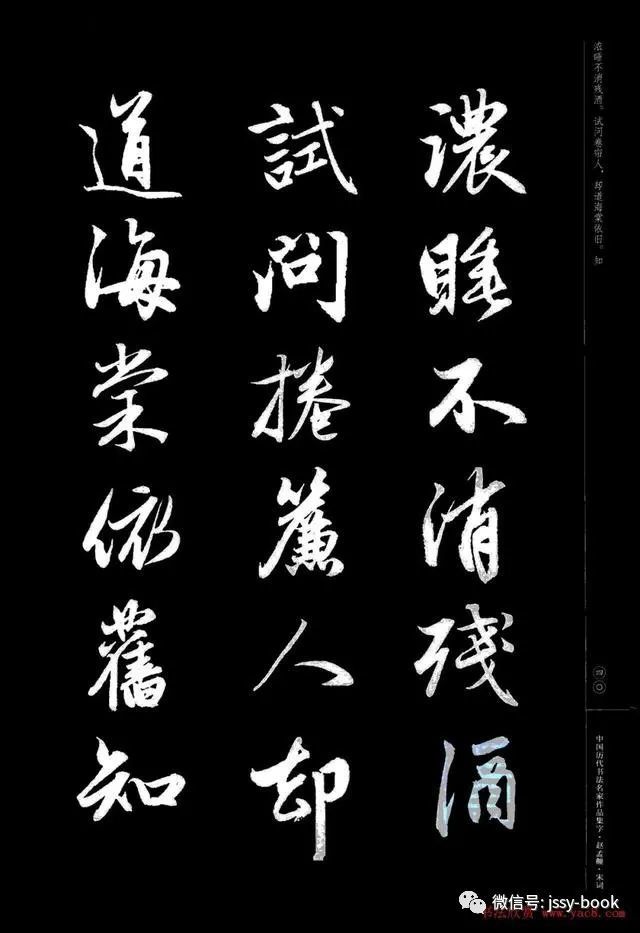 濃睡不消残酒
試問捲簾人却
道海棠依舊知
浓睡不消残酒。试问卷帘人,却道海棠依旧。知
四〇
中国历代书法名家作品集字·赵孟頫·宋词
微信号: jssy-book
书法欣赏 www.yac8.com